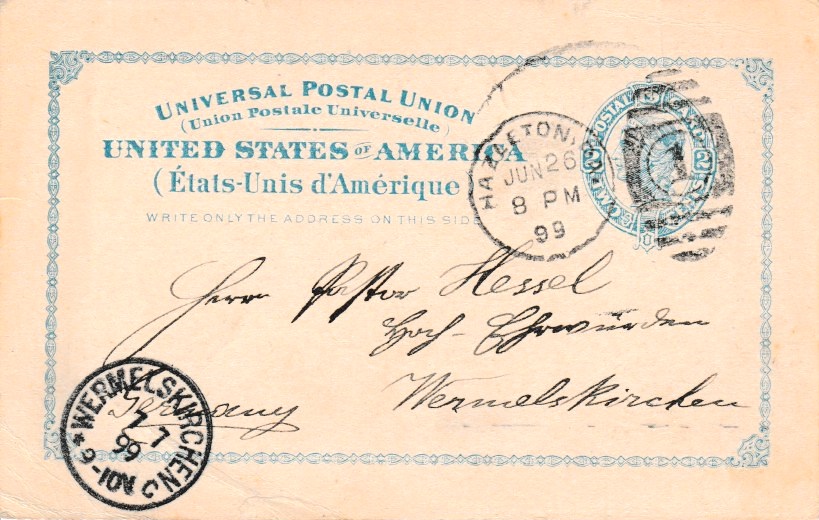 UNIVERSAL POSTAL UNION
(Union Postale Universelle)
UNITED STATES OF AMERICA
(États-Unis d'Amérique
WRITE ONLY THE ADDRESS ON THIS SIDE
HAZLETON,
JUN 26
8 PM
99
POSTAL CARD
1
Herrn Pastor Hessel
Hoch-Ehrwürden
Wermelskirchen
Germany
* WERMELSKIRCHEN C
7 7
99
9-10V